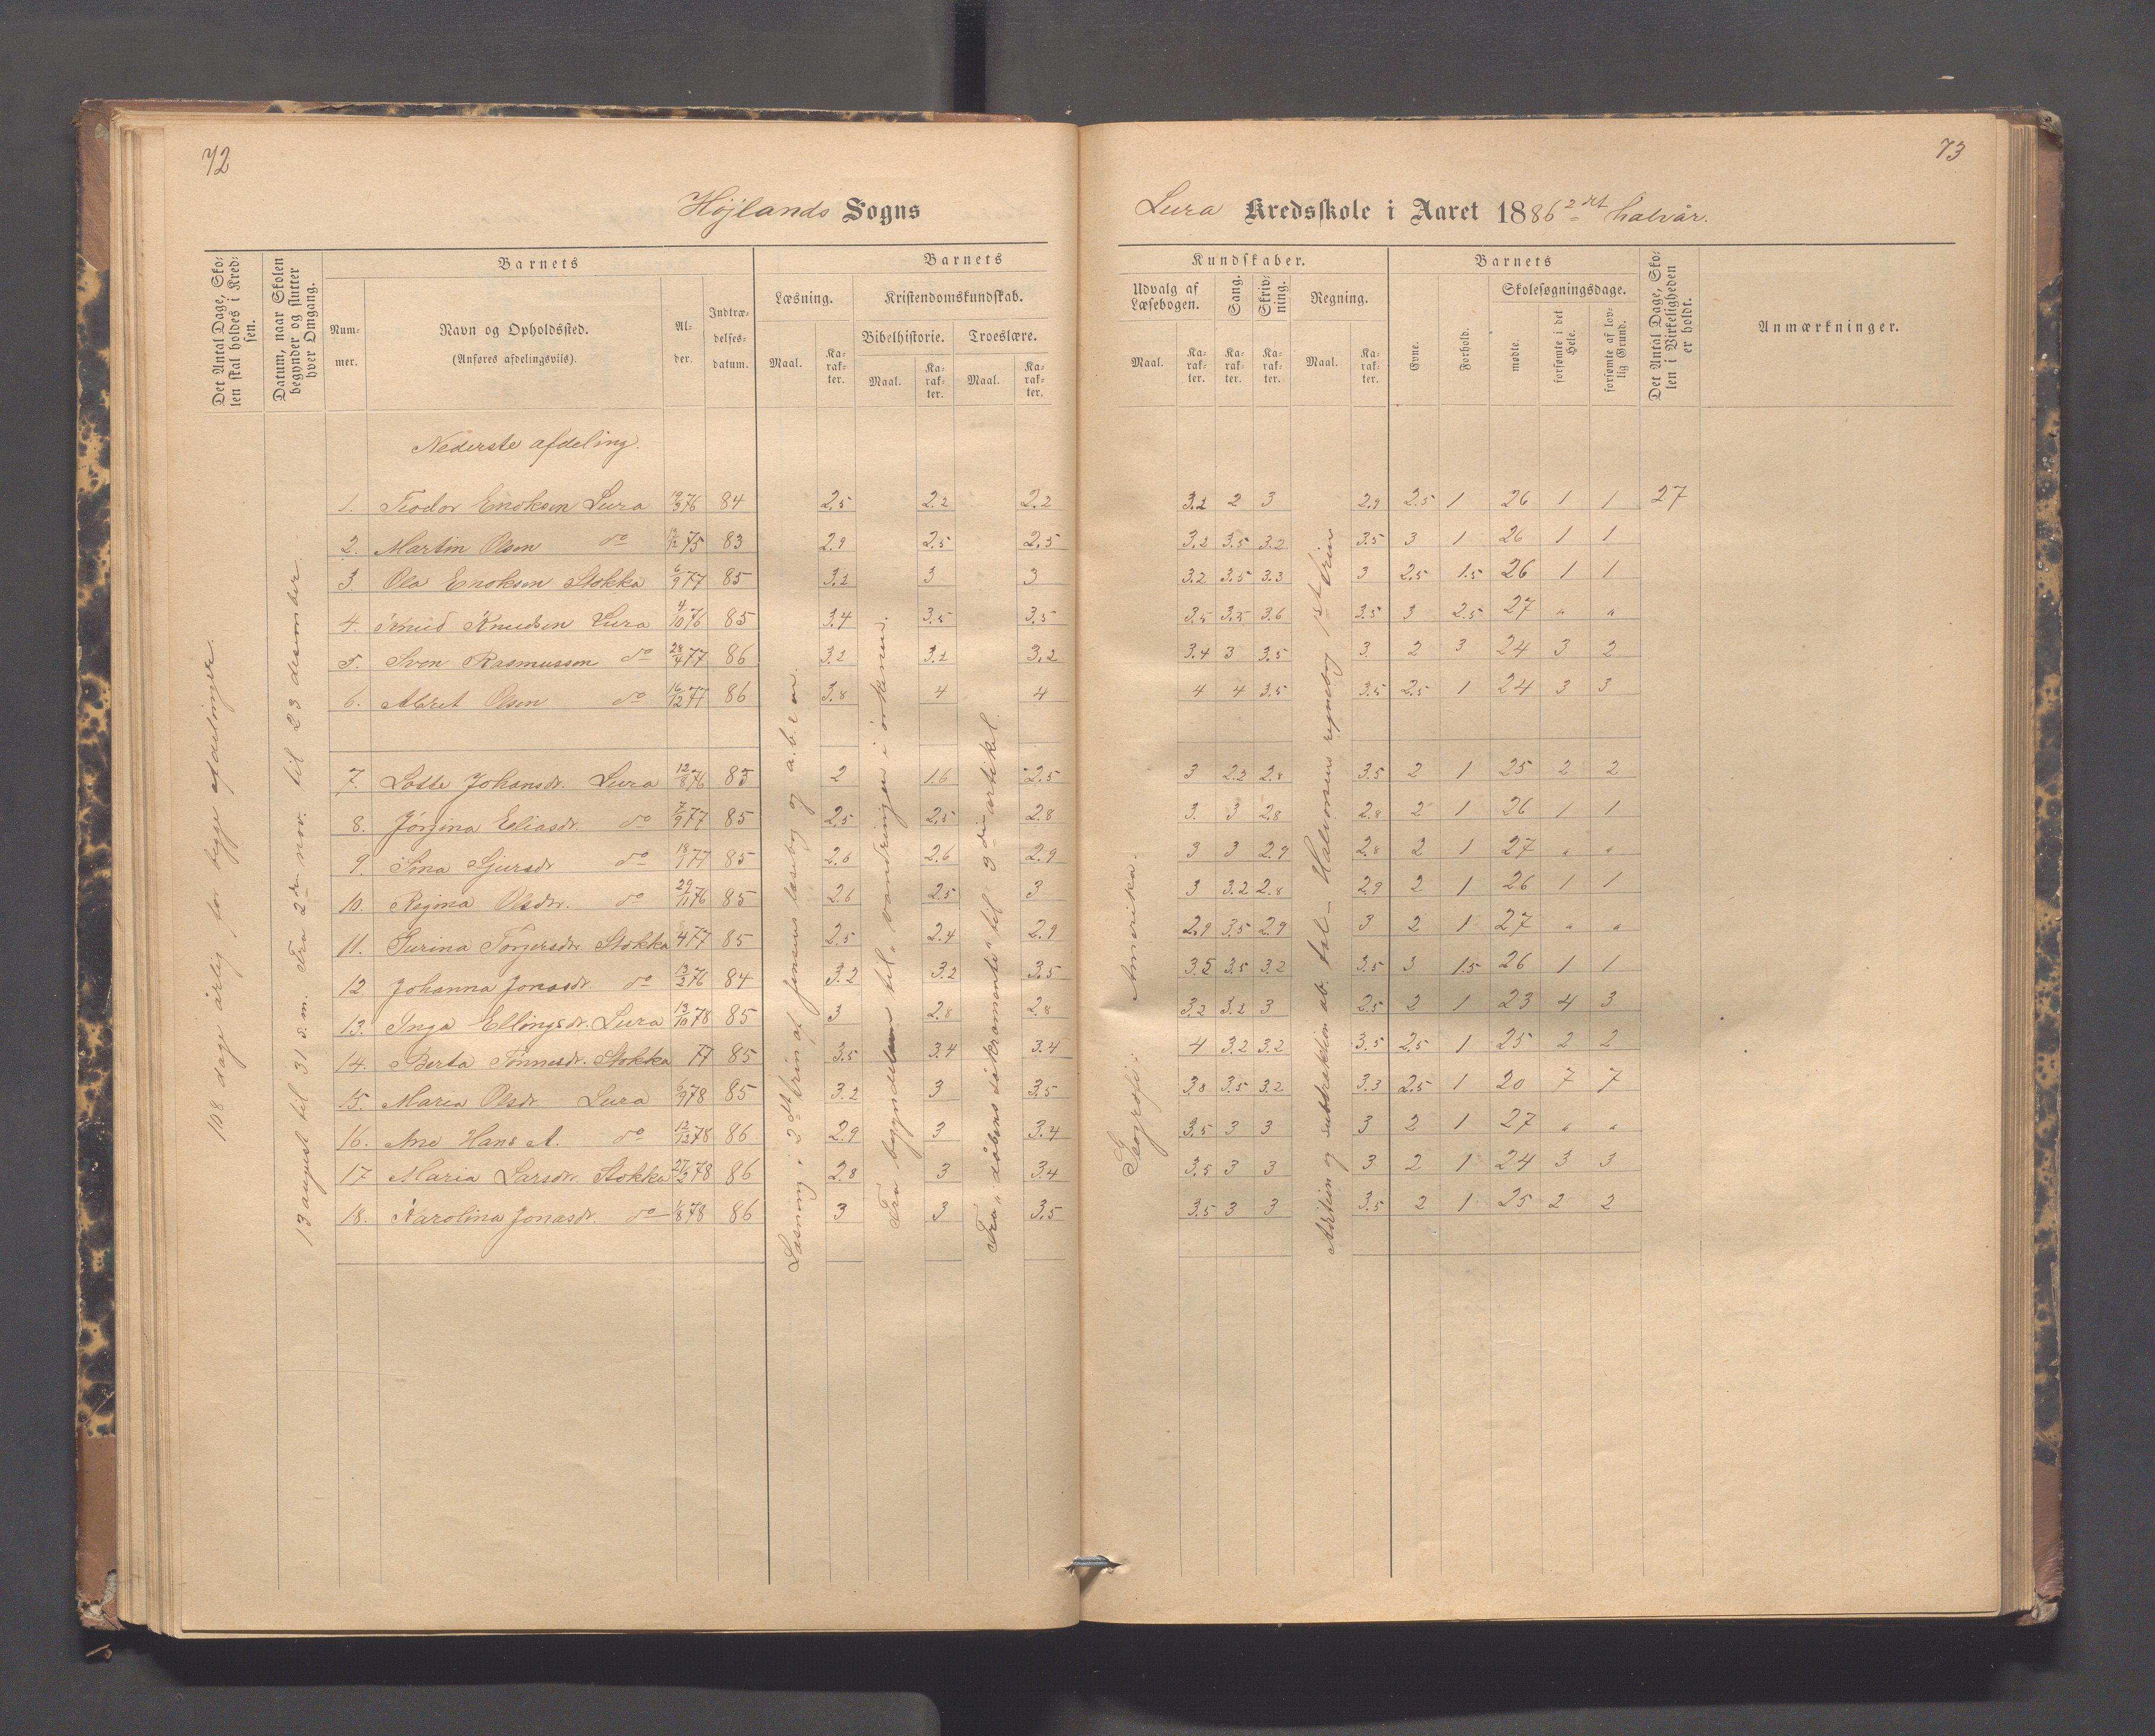 72
73
Højlands Sogns
Lura Kredsskole i Aaret 1886 2det halvår.
Det Antal Dage, Sko-
len skal holdes i Kred-
sen.
Datum, naar Skolen
begynder og slutter
hver Omgang.
Barnets
Num-
mer.
Navn og Opholdssted.
(Anføres afdelingsvils).
Al-
der.
Indtræ-
delses-
datum.
Barnets
Læsning.
Maal.
Ka-
rak-
ter.
Kristendomskundskab.
Bibelhistorie.
Maal.
Ka-
rak-
ter.
Troeslære.
Maal.
Ka-
rak-
ter.
Kundskaber.
Udvalg af
Læsebogen.
Maal.
Ka-
rak-
ter.
Sang.
Ka-
rak-
ter.
Skriv-
ning.
Ka-
rak-
ter.
Regning.
Maal.
Ka-
rak-
ter.
Barnets
Evne.
Forhold.
Skolesøgningsdage.
mødte.
forsømte i det
Hele.
forsømte af lov-
lig Grund.
Det Antal Dage, Sko-
len i Virkeligheden
er holdt.
Anmærkninger.
108 dage årlig for begge afdelinger.
13 august til 31 s. m. Fra 2den nov. til 23 desember.
Læsning i 2det trin af Jensens læsebog og a.b.c en.
Fra begyndelsen til "vandringen i ørkenen".
Fra "dåbens sakramente" til 3die artikel.
Geografi: Amerika.
Adition og subtraktion ab. tal - Halvorsens regnebog 1ste trin
Nederste afdeling.
1. Teodor Enoksen Lura 19/3 76 84 2.5 2.2 2.2 3.2 2 3 2.9 2.5 1 26 1 1 27
2. Martin Olsen do 12/12 75 83 2.9 2.5 2.5 3.2 3.5 3.2 3.5 3 1 26 1 1
3. Ola Enoksen Stokka 6/9 77 85 3.2 3 3 3.2 3.5 3.3 3 2.5 1.5 26 1 1
4. Knud Knudsen Lura 4/10 76 85 3.4 3.5 3.5 3.5 3.5 3.6 3.5 3 2.5 27 " "
5. Sven Rasmussen do 28/4 77 86 3.2 3.2 3.2 3.4 3 3.5 3 2 3 24 3 2
6. Albret Olsen do 16/12 77 86 3.8 4 4 4 4 3.5 3.5 2.5 1 24 3 3
7. Lotte Johansdr. Lura 12/8 76 83 2 1.6 2.5 3 2.2 2.8 3.5 2 1 25 2 2
8. Jørgina Eliasdr. do 7/9 77 85 2.5 2.5 2.8 3. 3 2.8 2.8 2 1 26 1 1
9. Sina Sjursdr do 18/1 77 85 2.6 2.6 2.9 3 3 2.9 2.8 2 1 27 " "
10. Regina Olsdtr. do 29/11 76 85 2.6 2.5 3 3 3.2 2.8 2.9 2 1 26 1 1
11. Surina Torgersdtr. Stokka 4 77 85 2.5 2.4 2.9 2.9 3.5 2.9 3 2 1 27 " "
12 Johanna Jonasdr. do 13/2 76 84 3.2 3.2 3.5 3.5 3.5 3.2 3.5 3 1.5 26 1 1
13. Inga Ellingsdr. Lura 13/10 78 85 3 2.8 2.8 3.2 3.2 3 2.5 2 1 23 4 3
14. Berta Tønnesdr. Stokka 77 85 3.5 3.4 3.4 4 3.2 3.2 3.5 2.5 1 25 2 2
15. Maria Olsdr. Lura 6/9 78 85 3.2 3 3.5 3.8 3.5 3.2 3.3 2.5 1 20 7 7
16. Ane Hans A. do 12/12 78 86 2.9 3 3.4 3.5 3 3 3 2 1 27 " "
17 Maria Larsdr. Stokka 27/2 78 86 2.8 3 3.4 3.5 3 3 3 2 1 24 3 3
18. Karolina Jonasdr. do 1/8 78 86 3 3 3.5 3.5 3 3 3.5 2 1 25 2 2